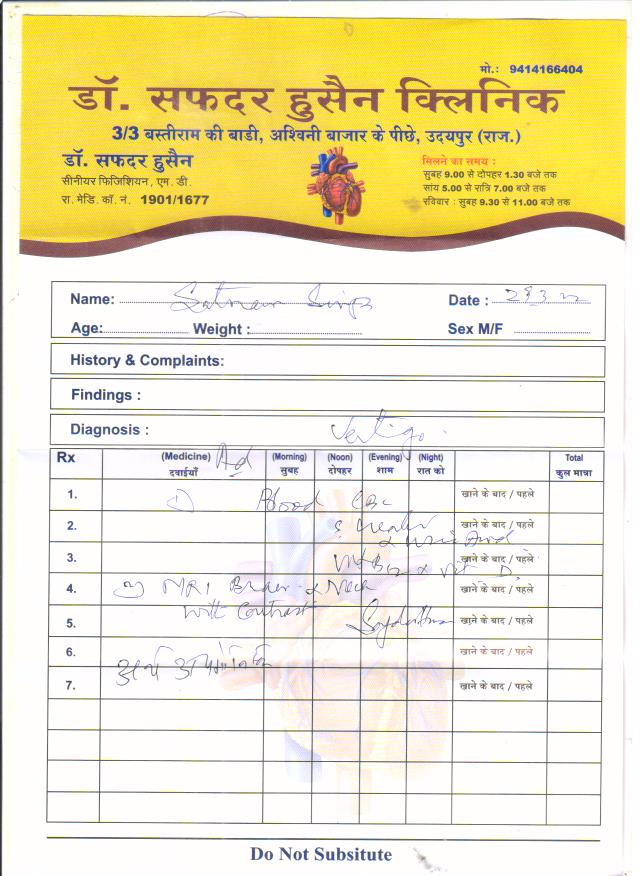 मो.: 9414166404
डॉ. सफदर हुसैन क्लिनिक
3/3 बस्तीराम की बाडी, अश्विनी बाजार के पीछे, उदयपुर (राज.)
डॉ. सफदर हुसैन
सीनीयर फिजिशियन, एम. डी.
रा. मेडि. कॉ. नं. 1901/1677
मिलने का समय :
सुबह 9.00 से दोपहर 1.30 बजे तक
सांय 5.00 से रात्रि 7.00 बजे तक
रविवार : सुबह 9.30 से 11.00 बजे तक
Name: Singh Date :
Age: Weight : Sex M/F
History & Complaints:
Findings :
Diagnosis : Vertigo
Rx (Medicine) (Morning) (Noon) (Evening) (Night) Total
दवाईयाँ सुबह दोपहर शाम रात को कुल मात्रा
Ad
1. ① Blood CBC खाने के बाद / पहले
2. खाने के बाद / पहले
3. B12 & Vit D3 खाने के बाद / पहले
4. MRI Brain & Neck खाने के बाद / पहले
with Contrast
5. खाने के बाद / पहले
6. खाने के बाद / पहले
7. खाने के बाद / पहले
Do Not Subsitute